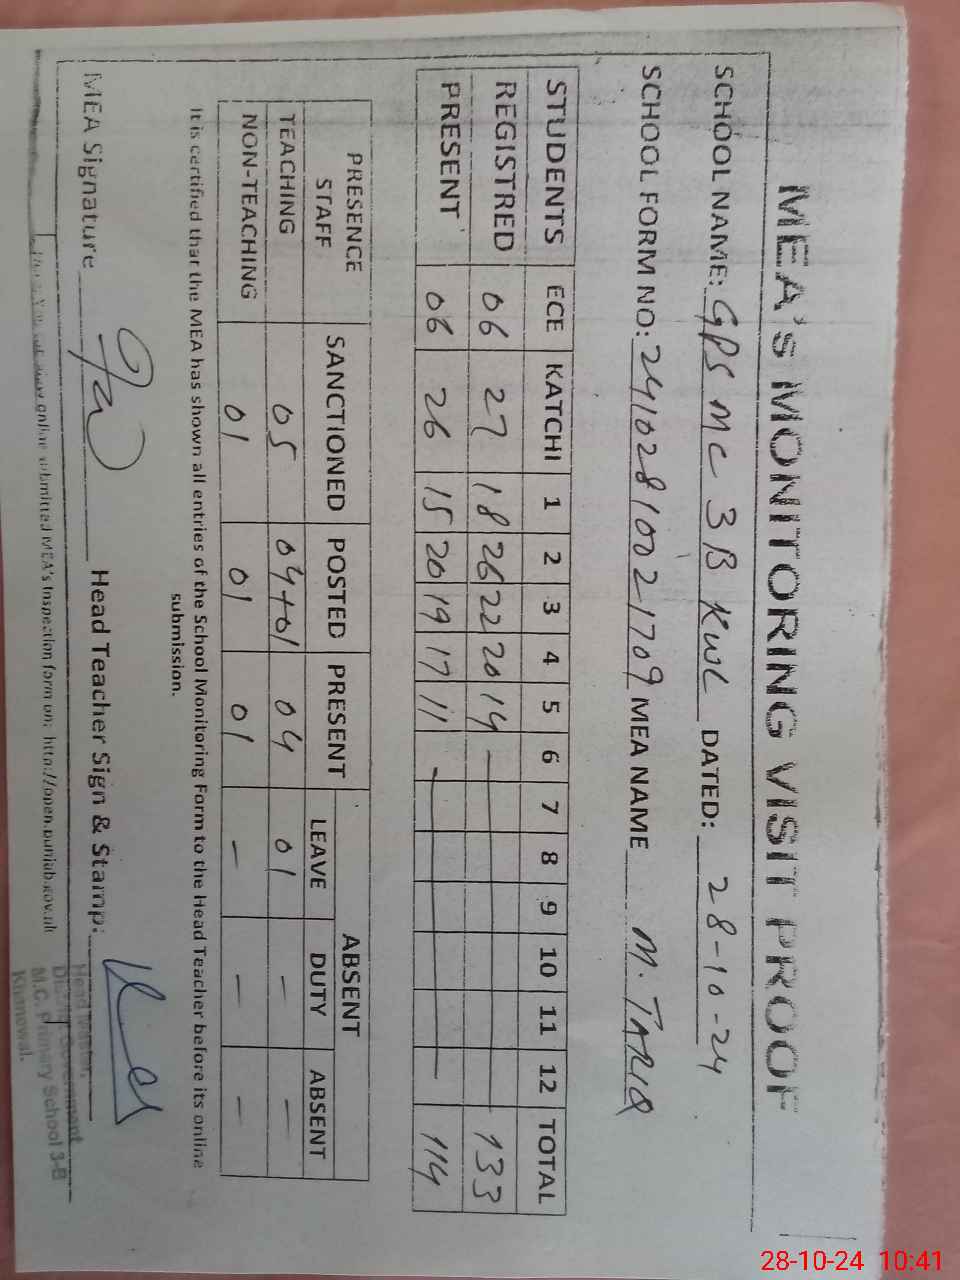 MEA'S MONITORING VISIT PROOF
SCHOOL NAME: GPS MC 3B KWL DATED: 28-10-24
SCHOOL FORM NO: 24102810021709 MEA NAME M. TARIQ
STUDENTS ECE KATCHI 1 2 3 4 5 6 7 8 9 10 11 12 TOTAL
REGISTRED 06 27 18 26 22 20 14 — 133
PRESENT 06 26 15 20 19 17 11 — 114
PRESENCE STAFF SANCTIONED POSTED PRESENT ABSENT
LEAVE DUTY ABSENT
TEACHING 05 04+01 04 01 — —
NON-TEACHING 01 01 01 — — —
It is certified that the MEA has shown all entries of the School Monitoring Form to the Head Teacher before its online
submission.
MEA Signature Head Teacher Sign & Stamp:
Head Master,
District Government
M.C. Primary School 3-B
Khanewal.
online submitted MEA's inspection form on: http://open.punjab.gov.pk
28-10-24 10:41